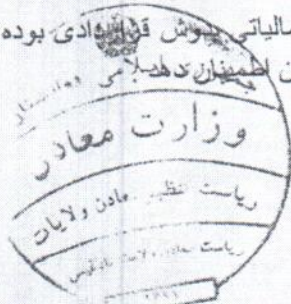 مالیاتی بدوش قراردادی بوده
ن اطمینان دهد
وزارت معادن
ریاست تنظیم معادن ولایات
ریاست معادن ولایت بادغیس